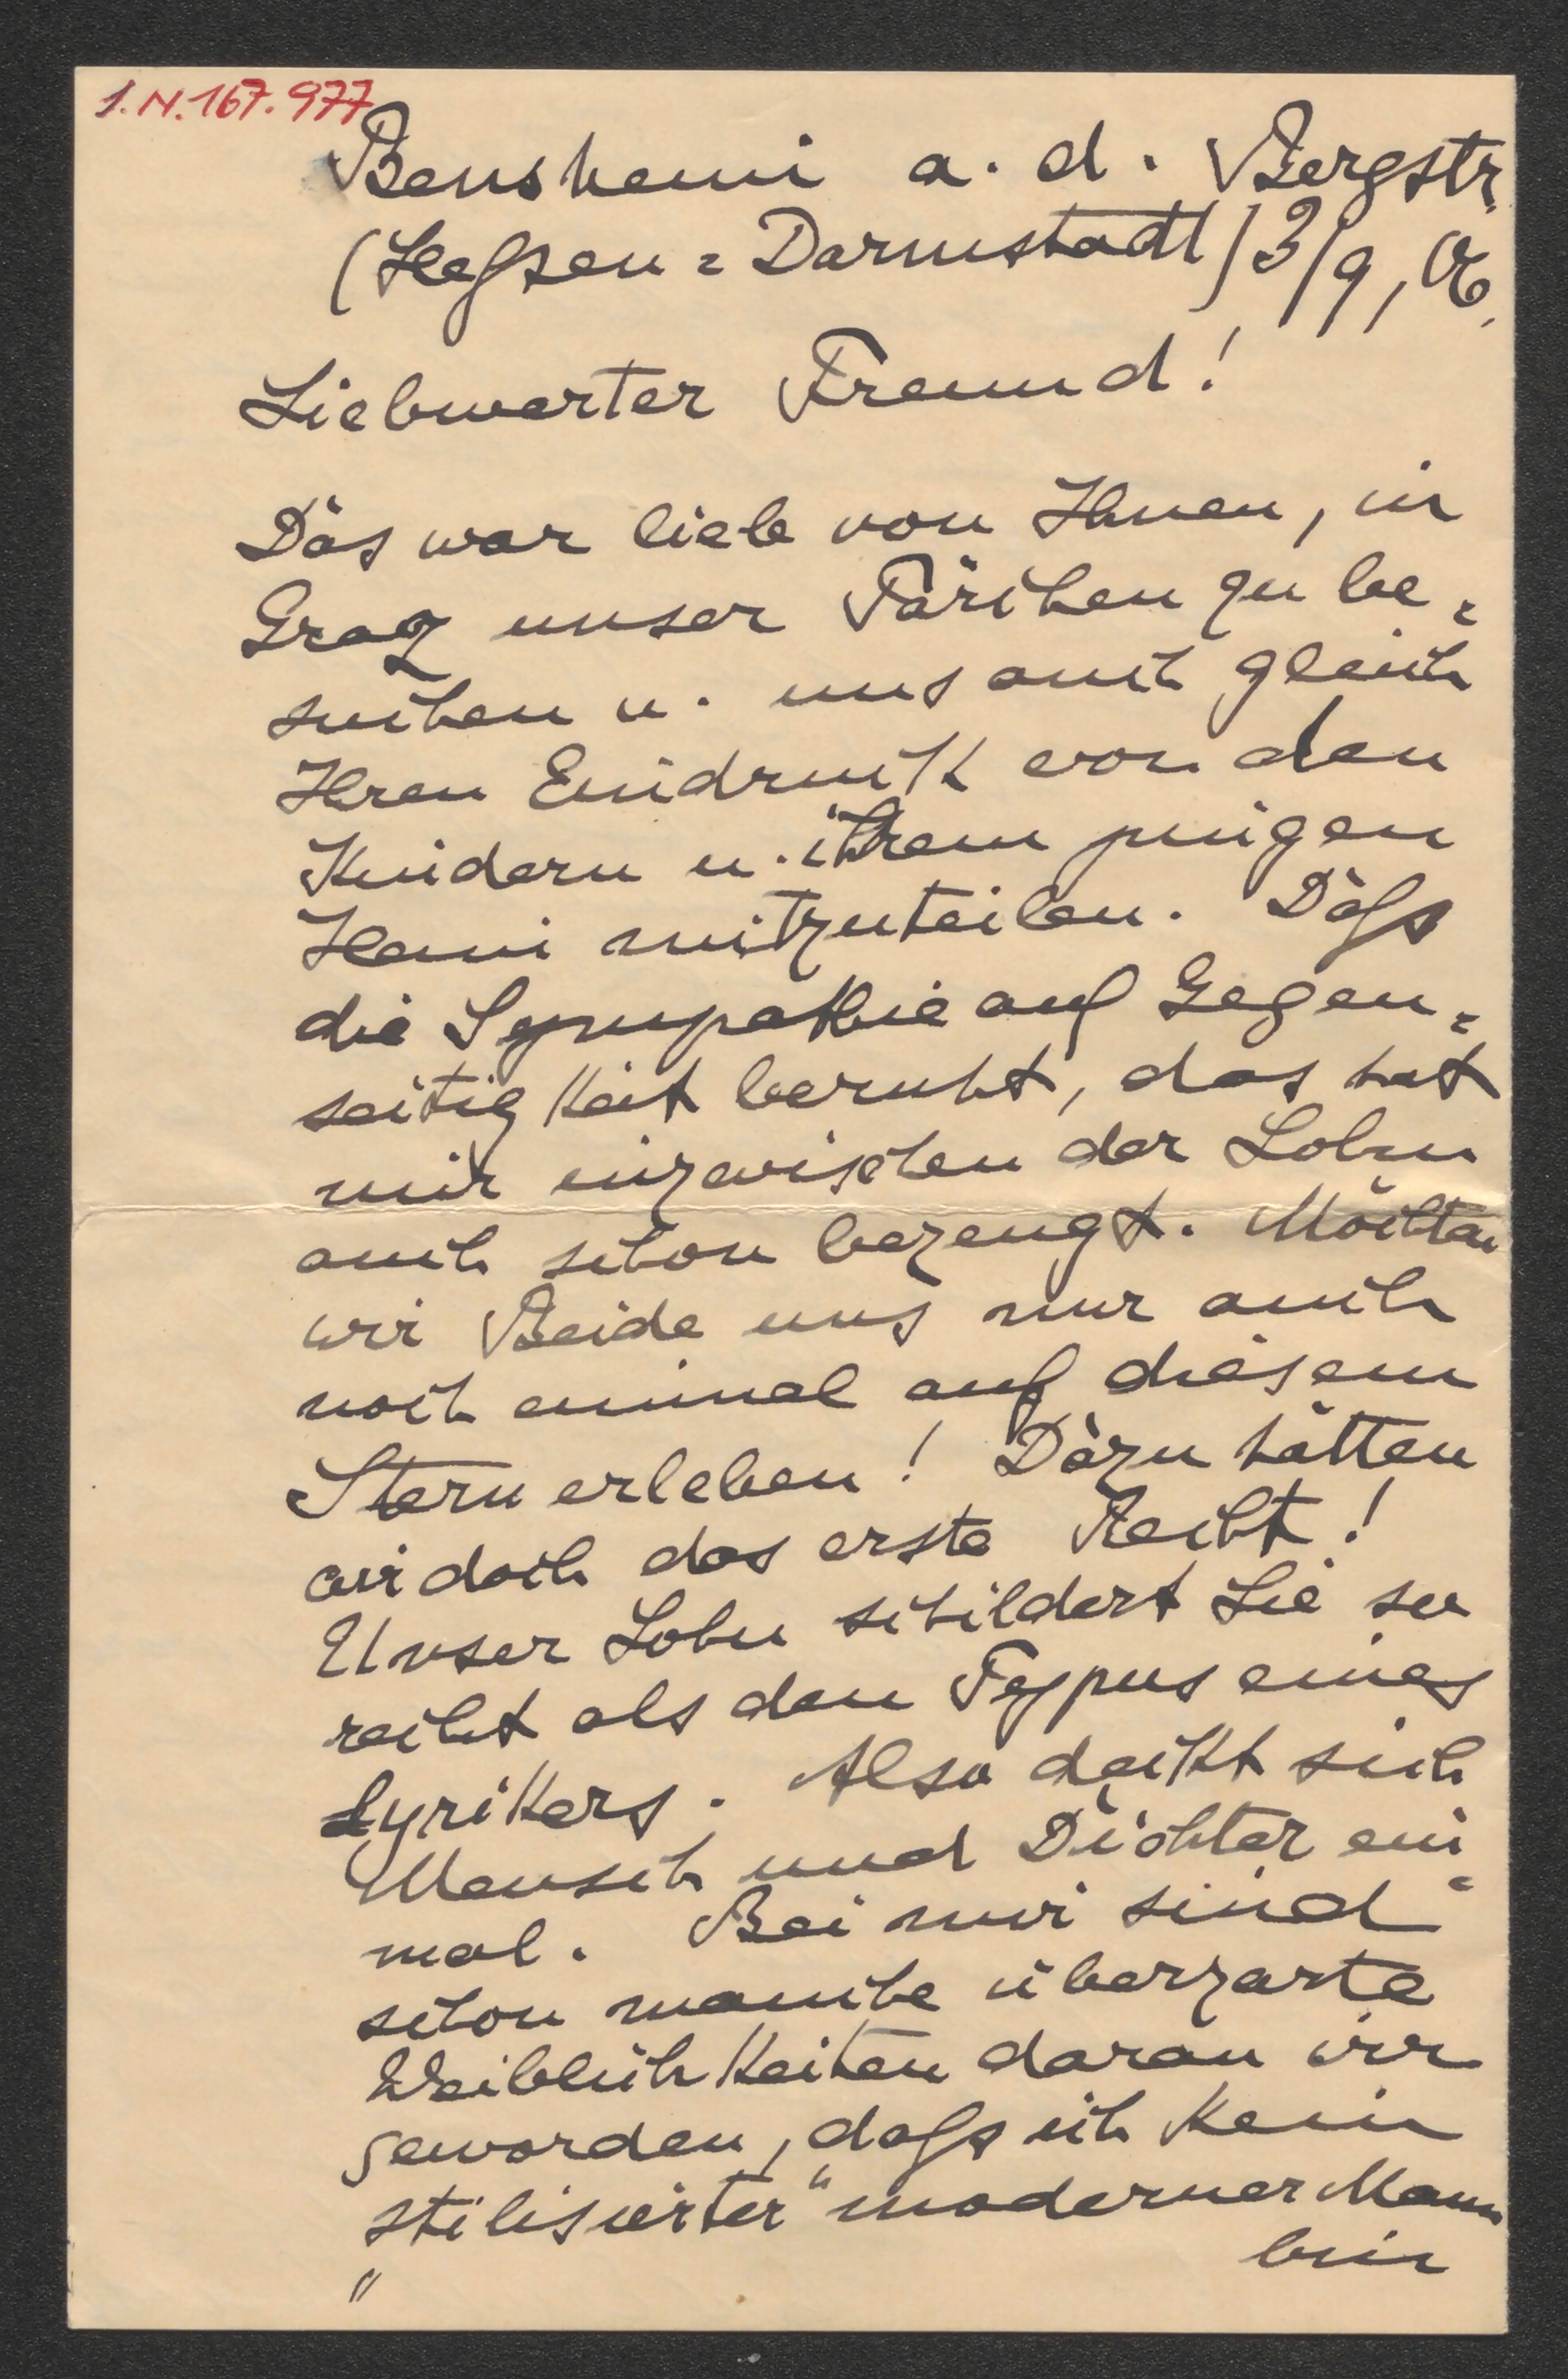 I.N.167.977
Bensheim a. d. Bergstr.
(Hessen=Darmstadt) 3/9, 06.
Liebwerter Freund!
Das war lieb von Ihnen, in
Graz unser Pärchen zu be=
suchen u. uns auch gleich
Ihren Eindruck von den
Kindern u. ihrem jungen
Heim mitzuteilen. Dass
die Sympathie auf Gegen=
seitigkeit beruht, das hat
mir inzwischen der Sohn
auch schon bezeugt. Möchten
wir Beide uns nur auch
noch einmal auf diesem
Stern erleben! Dazu hätten
wir doch das erste Recht!
Unser Sohn schildert Sie so
recht als den Typus eines
Lyrikers. Also deckt sich
Mensch und Dichter ein=
mal. Bei mir sind
schon manche überzarte
Weiblichkeiten daran irr
geworden, dass ich kein
„stilisierter" moderner Mann
bin